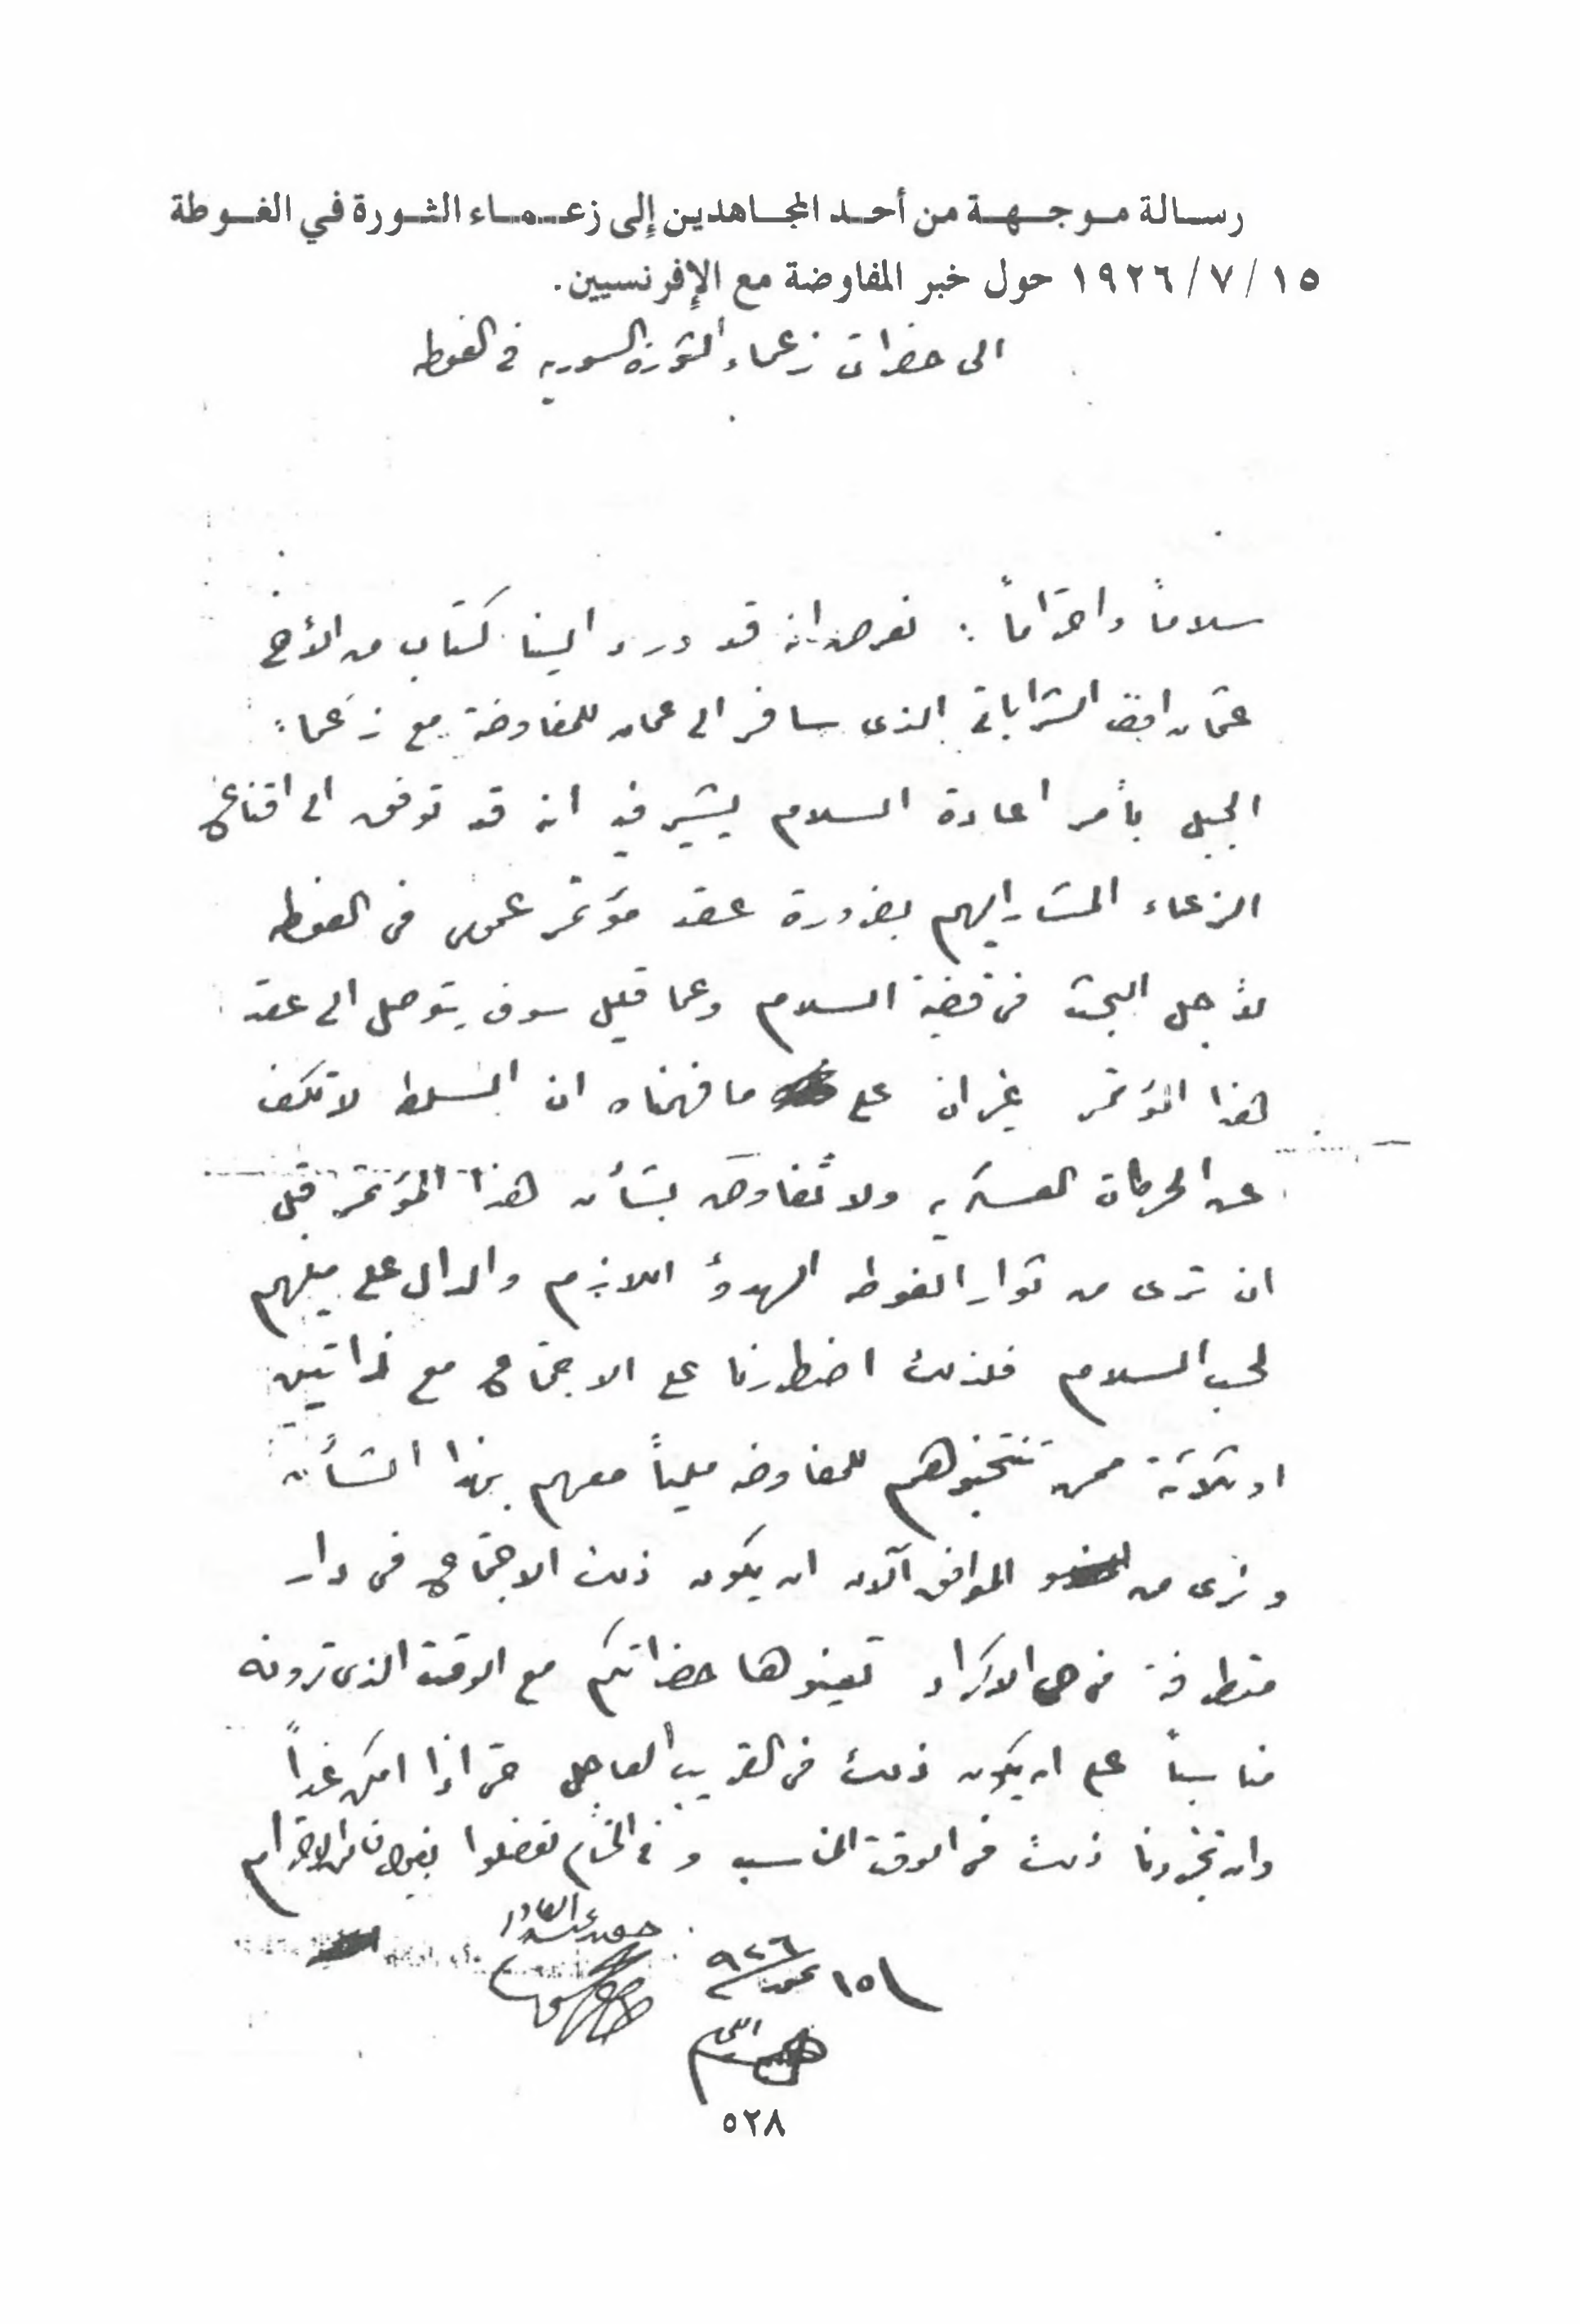 رسالة موجهة من أحد المجاهدين إلى زعماء الثورة في الغوطة
١٥ / ٧ / ١٩٢٦ حول خبر المفاوضة مع الإفرنسيين.
الى حضرات زعماء الثورة السوريه في الغوطه
سلاماً واحتراماً : نعرض انه قد ورد الينا كتاب من الأخ
عثمان افندي الشراباتي الذي سافر الى عمان للمفاوضة مع زعماء
الجبل بأمر اعادة السلام يشير فيه انه قد توفق الى اقناع
الزعماء المشار اليهم بضرورة عقد مؤتمر عمومي في الغوطه
لأجل البحث في قضية السلام وعما قليل سوف يتوصل الى عقد
هذا المؤتمر غير ان على ما فهمناه ان السلطه لا تكف
عن الحركات العسكريه ولا تفاوض بشأن هذا المؤتمر قبل
ان ترى من ثوار الغوطه الهدؤ اللازم والدال على ميلهم
لحب السلام فلذلك اضطررنا على الاجتماع مع ذاتين
او ثلاثة ممن تنتخبوهم للمفاوضه ملياً معهم بهذا الشأن
ونرى من الموافق الآن ان يكون ذلك الاجتماع في دار
متطرفة في حي الاكراد تعينوها حضراتكم مع الوقت الذي ترونه
مناسباً على ان يكون ذلك في القريب العاجل حتى اذا امكن غداً
وان تخبرونا ذلك في الوقت المناسب و في الختام تفضلوا بقبول فائق الاحترام
١٥ تموز ٩٢٦
٥٢٨